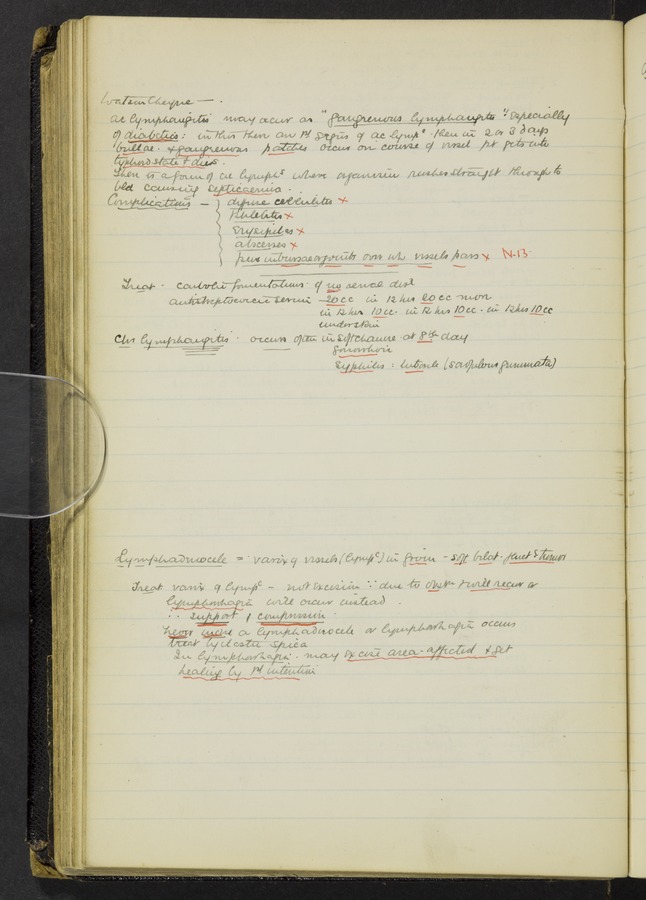 Watson Cheyne — .
ac lymphangitis may occur as "gangrenous lymphangitis" especially
of diabetics: in this there are 1st signs of ac lymp⁰ then in 2 or 3 days
bullae + gangrenous patches occur on course of vessel pt gets into
typhoid state + dies.
There is a form of ac lymphᵗˢ where organism rushes straight through to
bld causing septicaemia.
Complications — diffuse cellulitis x
Phlebitis x
Erysipelas x
abscesses x
pus in bursae or joints over wh vessels pass x N.B.
Treat. carbolic fomentations if no renal dis
antistreptococcic serum 20cc in 12 hrs 20cc more
in 12 hrs 10cc in 12 hrs 10cc in 12 hrs 10cc
under skin
Chr lymphangitis occurs often in soft chancre at 8th day
Gonorrhoea
Syphilis: tubercle (scrofulous gummata)
Lymphadenocele = varix of vessels (lympᶜ) in groin - soft bilat.
Treat varix of lympᶜ - not excision ∵ due to obstn + will recur or
lymphorrhagia will occur instead.
∴ support & compression
a lymphadenocele or lymphorrhagia occurs
treat by elastic spica
In lymphorrhagia may excise area affected + get
healing by 1st intention